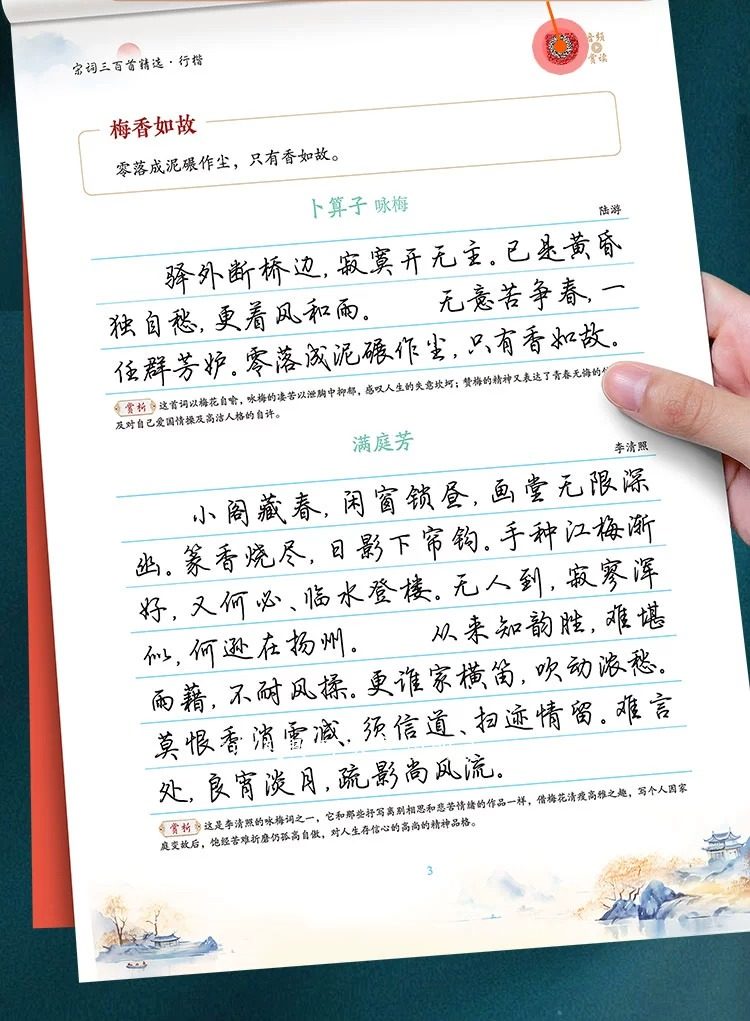 宋词三百首精选·行楷
音频
赏读
梅香如故
零落成泥碾作尘，只有香如故。
卜算子 咏梅
陆游
驿外断桥边，寂寞开无主。已是黄昏
独自愁，更着风和雨。 无意苦争春，一
任群芳妒。零落成泥碾作尘，只有香如故。
赏析 这首词以梅花自喻，咏梅的凄苦以泄胸中抑郁，感叹人生的失意坎坷；赞梅的精神又表达了青春无悔的
及对自己爱国情操及高洁人格的自许。
满庭芳
李清照
小阁藏春，闲窗锁昼，画堂无限深
幽。篆香烧尽，日影下帘钩。手种江梅渐
好，又何必、临水登楼。无人到，寂寥浑
似，何逊在扬州。 从来知韵胜，难堪
雨藉，不耐风揉。更谁家横笛，吹动浓愁。
莫恨香消雪减、须信道、扫迹情留。难言
处，良宵淡月，疏影尚风流。
赏析 这是李清照的咏梅词之一，它和那些抒写离别相思和悲苦情绪的作品一样，借梅花清瘦高雅之趣，写个人因家
庭变故后，饱经苦难折磨仍孤高自傲，对人生存信心的高尚的精神品格。
3